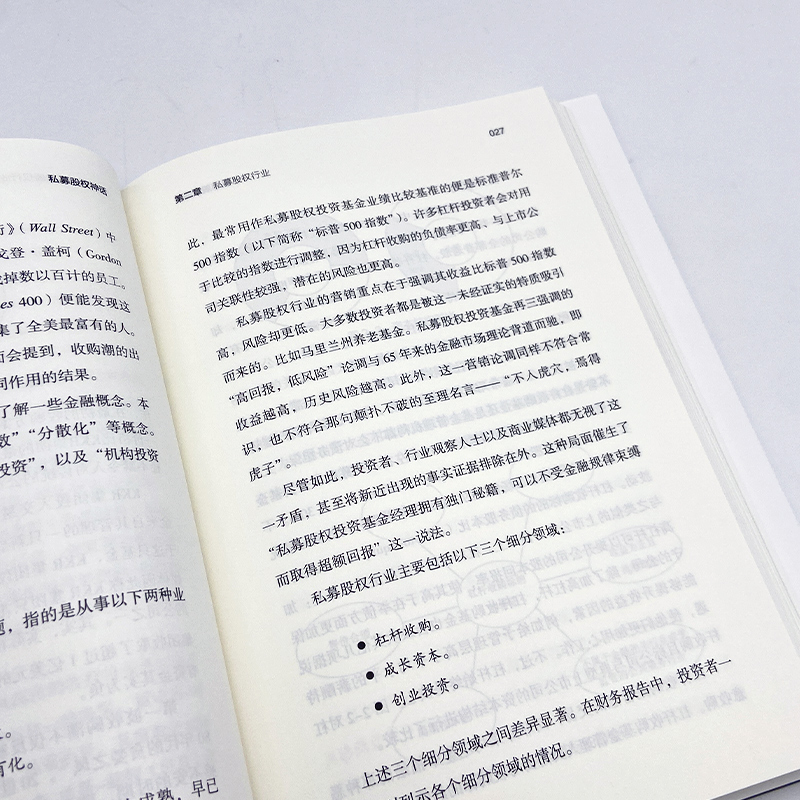 私募股权神话
行》(Wall Street) 中
戈登·盖柯 (Gordon
掉数以百计的员工。
es 400) 便能发现这
集了全美最富有的人。
而会提到，收购潮的出
同作用的结果。
了解一些金融概念。本
数”“分散化”等概念。
投资”，以及“机构投资
，指的是从事以下两种业
有化。
成熟，早已
027
第二章 私募股权行业
此，最常用作私募股权投资基金业绩比较基准的便是标准普尔
500 指数（以下简称“标普 500 指数”）。许多杠杆投资者会对用
于比较的指数进行调整，因为杠杆收购的负债率更高、与上市公
司关联性较强，潜在的风险也更高。
私募股权行业的营销重点在于强调其收益比标普 500 指数
高，风险却更低。大多数投资者都是被这一未经证实的特质吸引
而来的。比如马里兰州养老基金。私募股权投资基金再三强调的
“高回报，低风险”论调与 65 年来的金融市场理论背道而驰，即
收益越高，历史风险越高。此外，这一营销论调同样不符合常
识，也不符合那句颠扑不破的至理名言——“不入虎穴，焉得
虎子”。
尽管如此，投资者、行业观察人士以及商业媒体都无视了这
一矛盾，甚至将新近出现的事实证据排除在外。这种局面催生了
“私募股权投资基金经理拥有独门秘籍，可以不受金融规律束缚
而取得超额回报”这一说法。
私募股权行业主要包括以下三个细分领域：
● 杠杆收购。
● 成长资本。
● 创业投资。
上述三个细分领域之间差异显著。在财务报告中，投资者一
列示各个细分领域的情况。